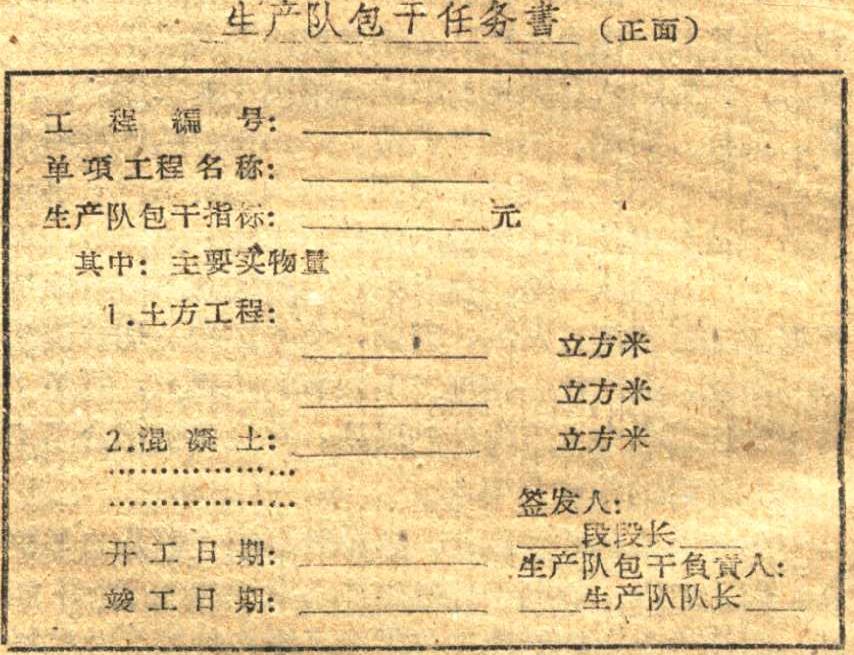 生产队包干任务書（正面）
工程編号：
单項工程名称：
生产队包干指标：元
其中：主要实物量
1.土方工程：
立方米
立方米
2.混凝土：立方米
………………
………………
签发人：
段段长
开工日期：
生产队包干負責人：
竣工日期：
生产队队长